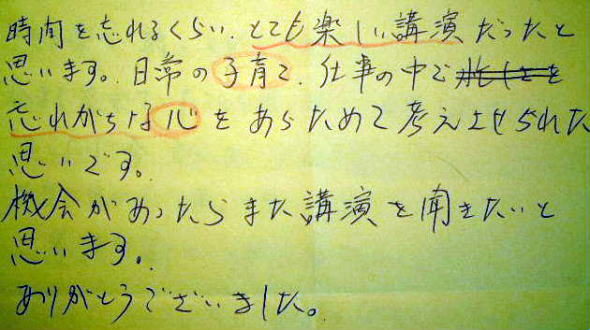 時間を忘れるくらい、とても楽しい講演だったと
思います。日常の子育て、仕事の中で
忘れがちな心をあらためて考えさせられた
思いです。
機会があったらまた講演を聞きたいと
思います。
ありがとうございました。